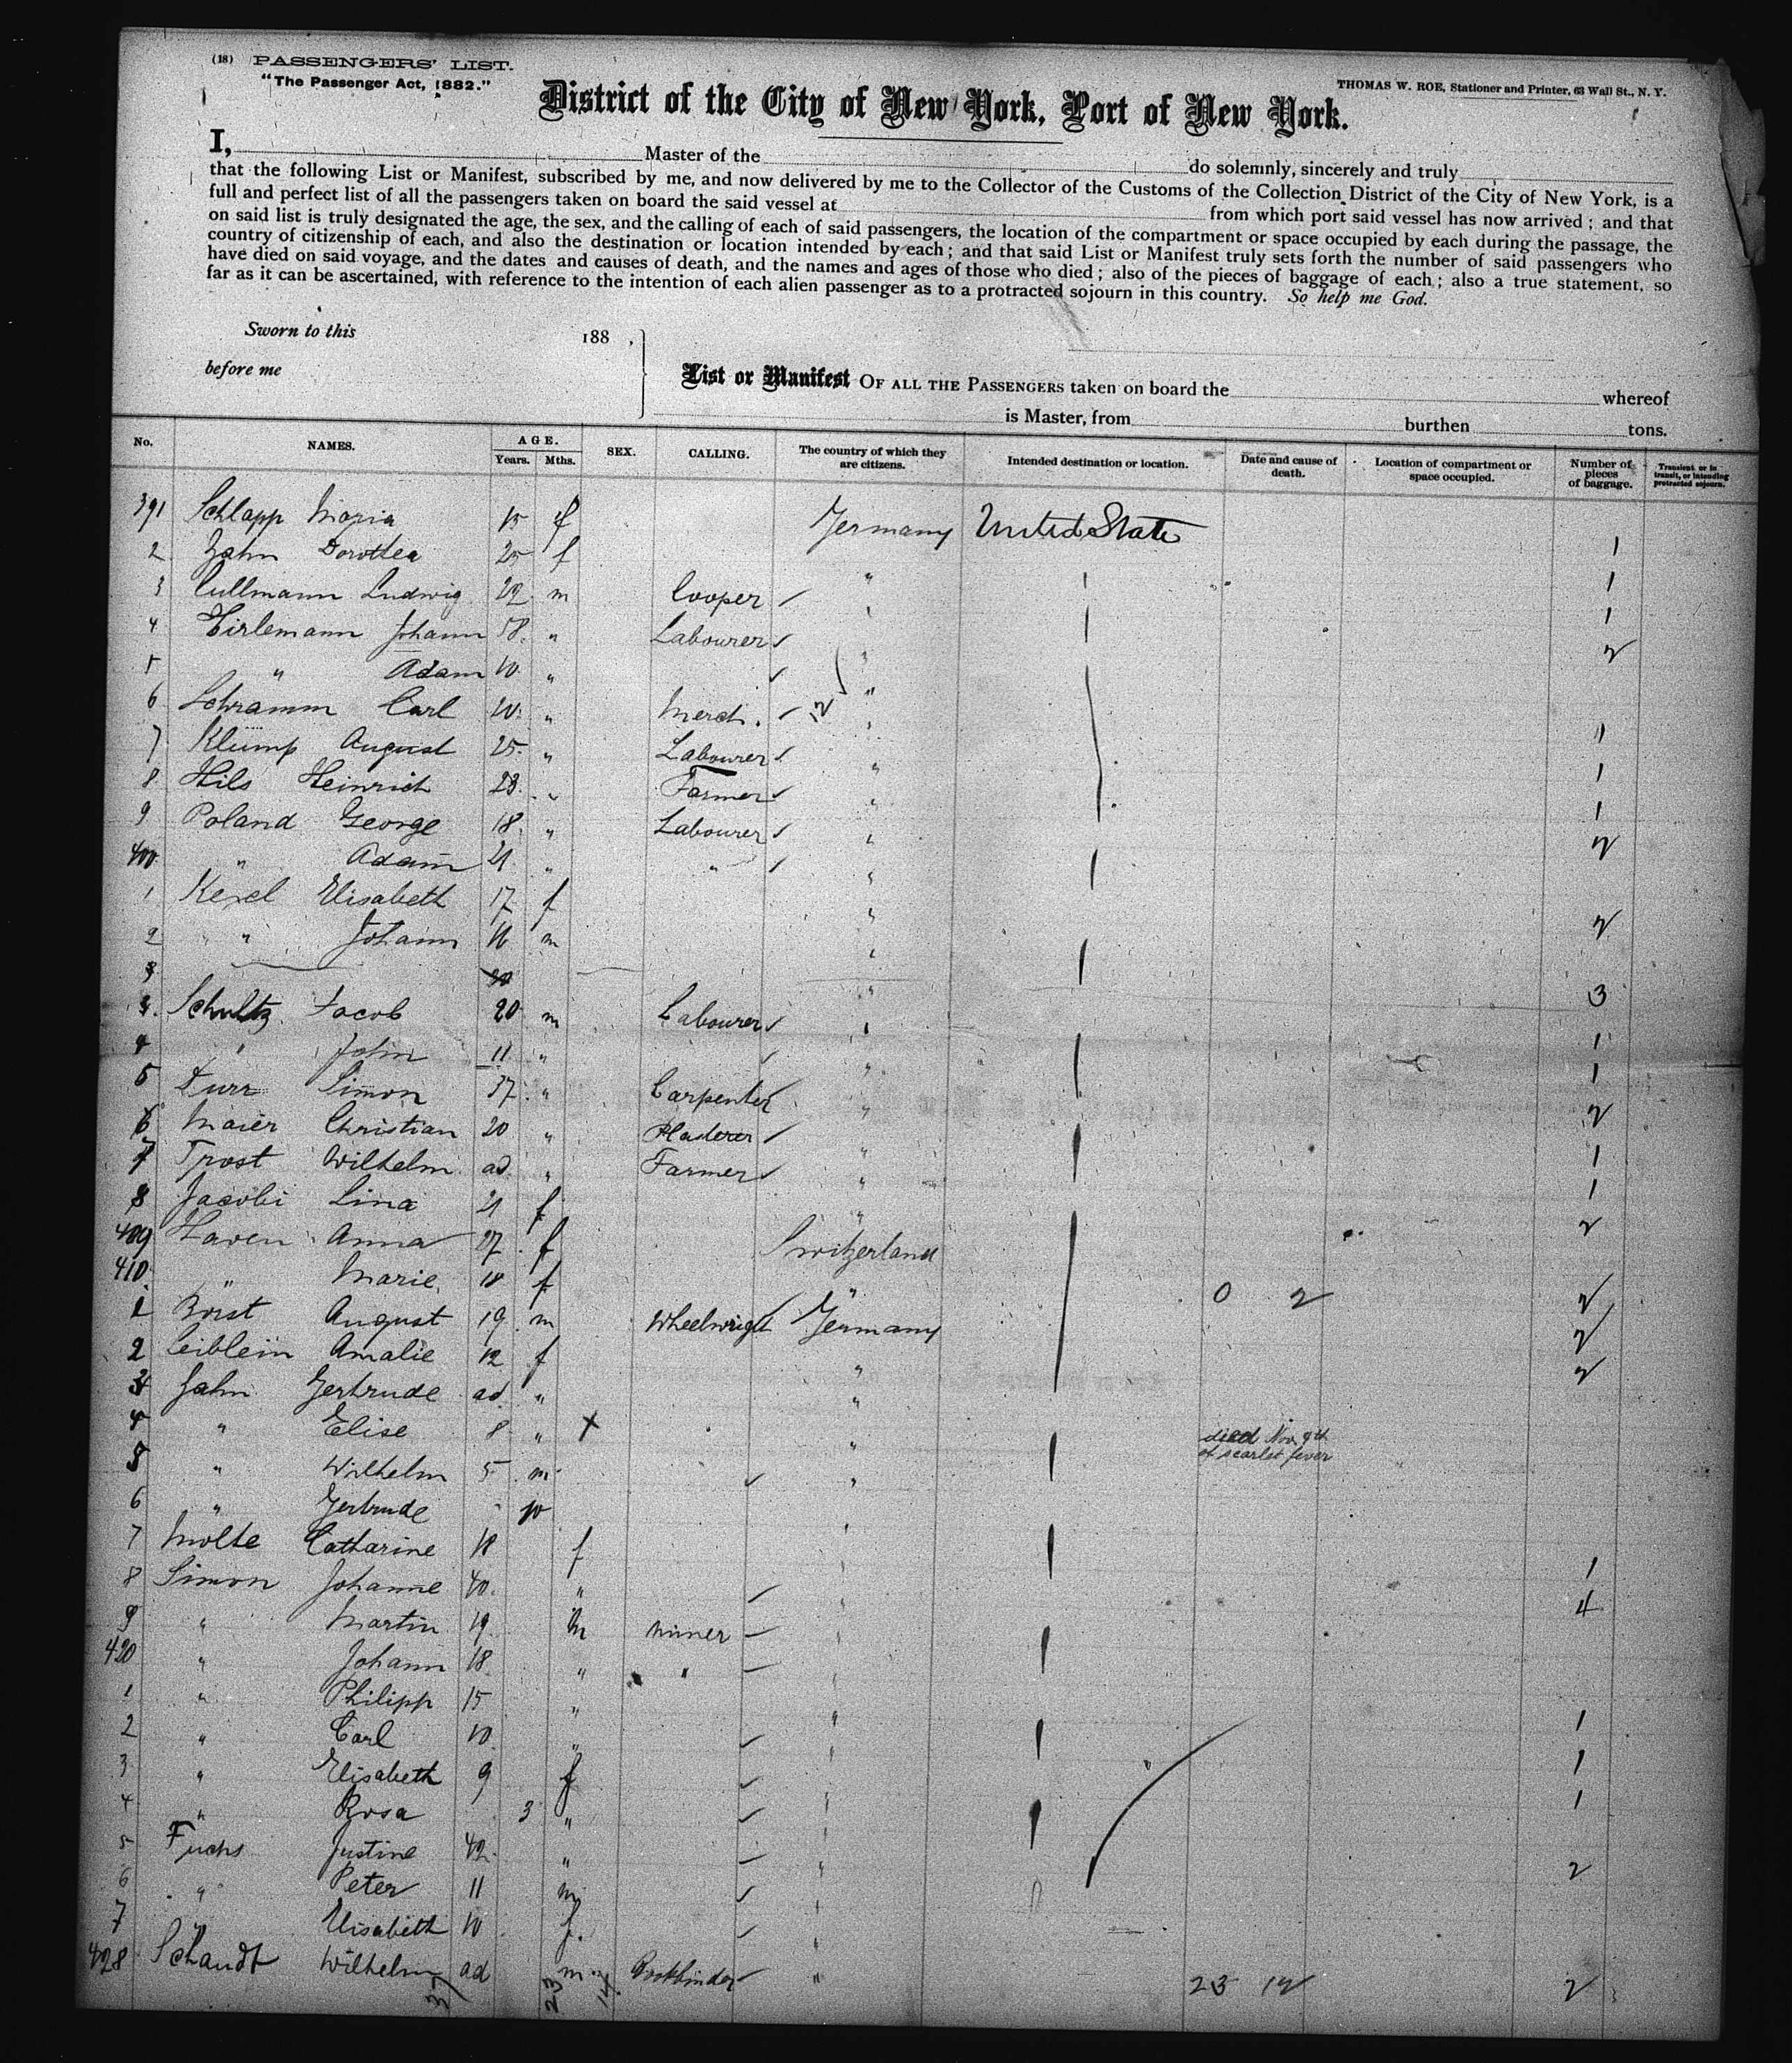 (18) PASSENGERS' LIST.
"The Passenger Act, 1882."
THOMAS W. ROE, Stationer and Printer, 63 Wall St., N. Y.
District of the City of New York, Port of New York.
I, Master of the do solemnly, sincerely and truly
that the following List or Manifest, subscribed by me, and now delivered by me to the Collector of the Customs of the Collection District of the City of New York, is a
full and perfect list of all the passengers taken on board the said vessel at from which port said vessel has now arrived; and that
on said list is truly designated the age, the sex, and the calling of each of said passengers, the location of the compartment or space occupied by each during the passage, the
country of citizenship of each, and also the destination or location intended by each; and that said List or Manifest truly sets forth the number of said passengers who
have died on said voyage, and the dates and causes of death, and the names and ages of those who died; also of the pieces of baggage of each; also a true statement, so
far as it can be ascertained, with reference to the intention of each alien passenger as to a protracted sojourn in this country. So help me God.
Sworn to this 188 ,
before me
List or Manifest OF ALL THE PASSENGERS taken on board the whereof
is Master, from burthen tons.
No. NAMES. AGE. Years. Mths. SEX. CALLING. The country of which they are citizens. Intended destination or location. Date and cause of death. Location of compartment or space occupied. Number of pieces of baggage. Transient or in transit, or intending protracted sojourn.
391 Schlapp Maria 15 f Germany United State
2 Zahn Dorothea 25 f " 1
3 Cullmann Ludwig 22 m Cooper " 1
4 Hirlemann Johann 58 " Labourer " 1
5 " Adam 10 " " 2
6 Schramm Carl 20 " Merch. "
7 Klump August 25 " Labourer " 1
8 Hils Heinrich 28 " Farmer " 1
9 Poland George 18 " Labourer " 1
400 " Adam 21 " " " 2
1 Elisabeth 17 f "
2 " Johann 16 m " 2
3
3 Schultz Jacob 20 m Labourer " 3
4 " John 11 " " 1
5 Durr Simon 37 " Carpenter " 1
6 Maier Christian 20 " Plasterer " 2
7 Trost Wilhelm ad " Farmer " 1
8 Jacobi Lina 21 f " 1
409 Anna 27 f Switzerland 2
410 " Marie 18 f " 0 2 2
1 August 19 m Wheelwright Germany 2
2 Leiblein Amalie 12 f " 2
3 Jahn Gertrude ad "
4 " Elise 8 " + " died Nov 9th of scarlet fever
5 " Wilhelm 5 m "
6 " Gertrude 10
7 Molte Catharine 18 f
8 Simon Johanne 40 " 1
9 " Martin 19 m Miner 4
420 " Johann 18 " "
1 " Philipp 15 "
2 " Carl 10 " 1
3 " Elisabeth 9 f 1
4 " Rosa 3 " 1
5 Fuchs Justine 42 "
6 " Peter 11 m 2
7 " Elisabeth 10 f.
428 Schandt Wilhelm ad m Bookbinder " 2
37 23 14 23 12